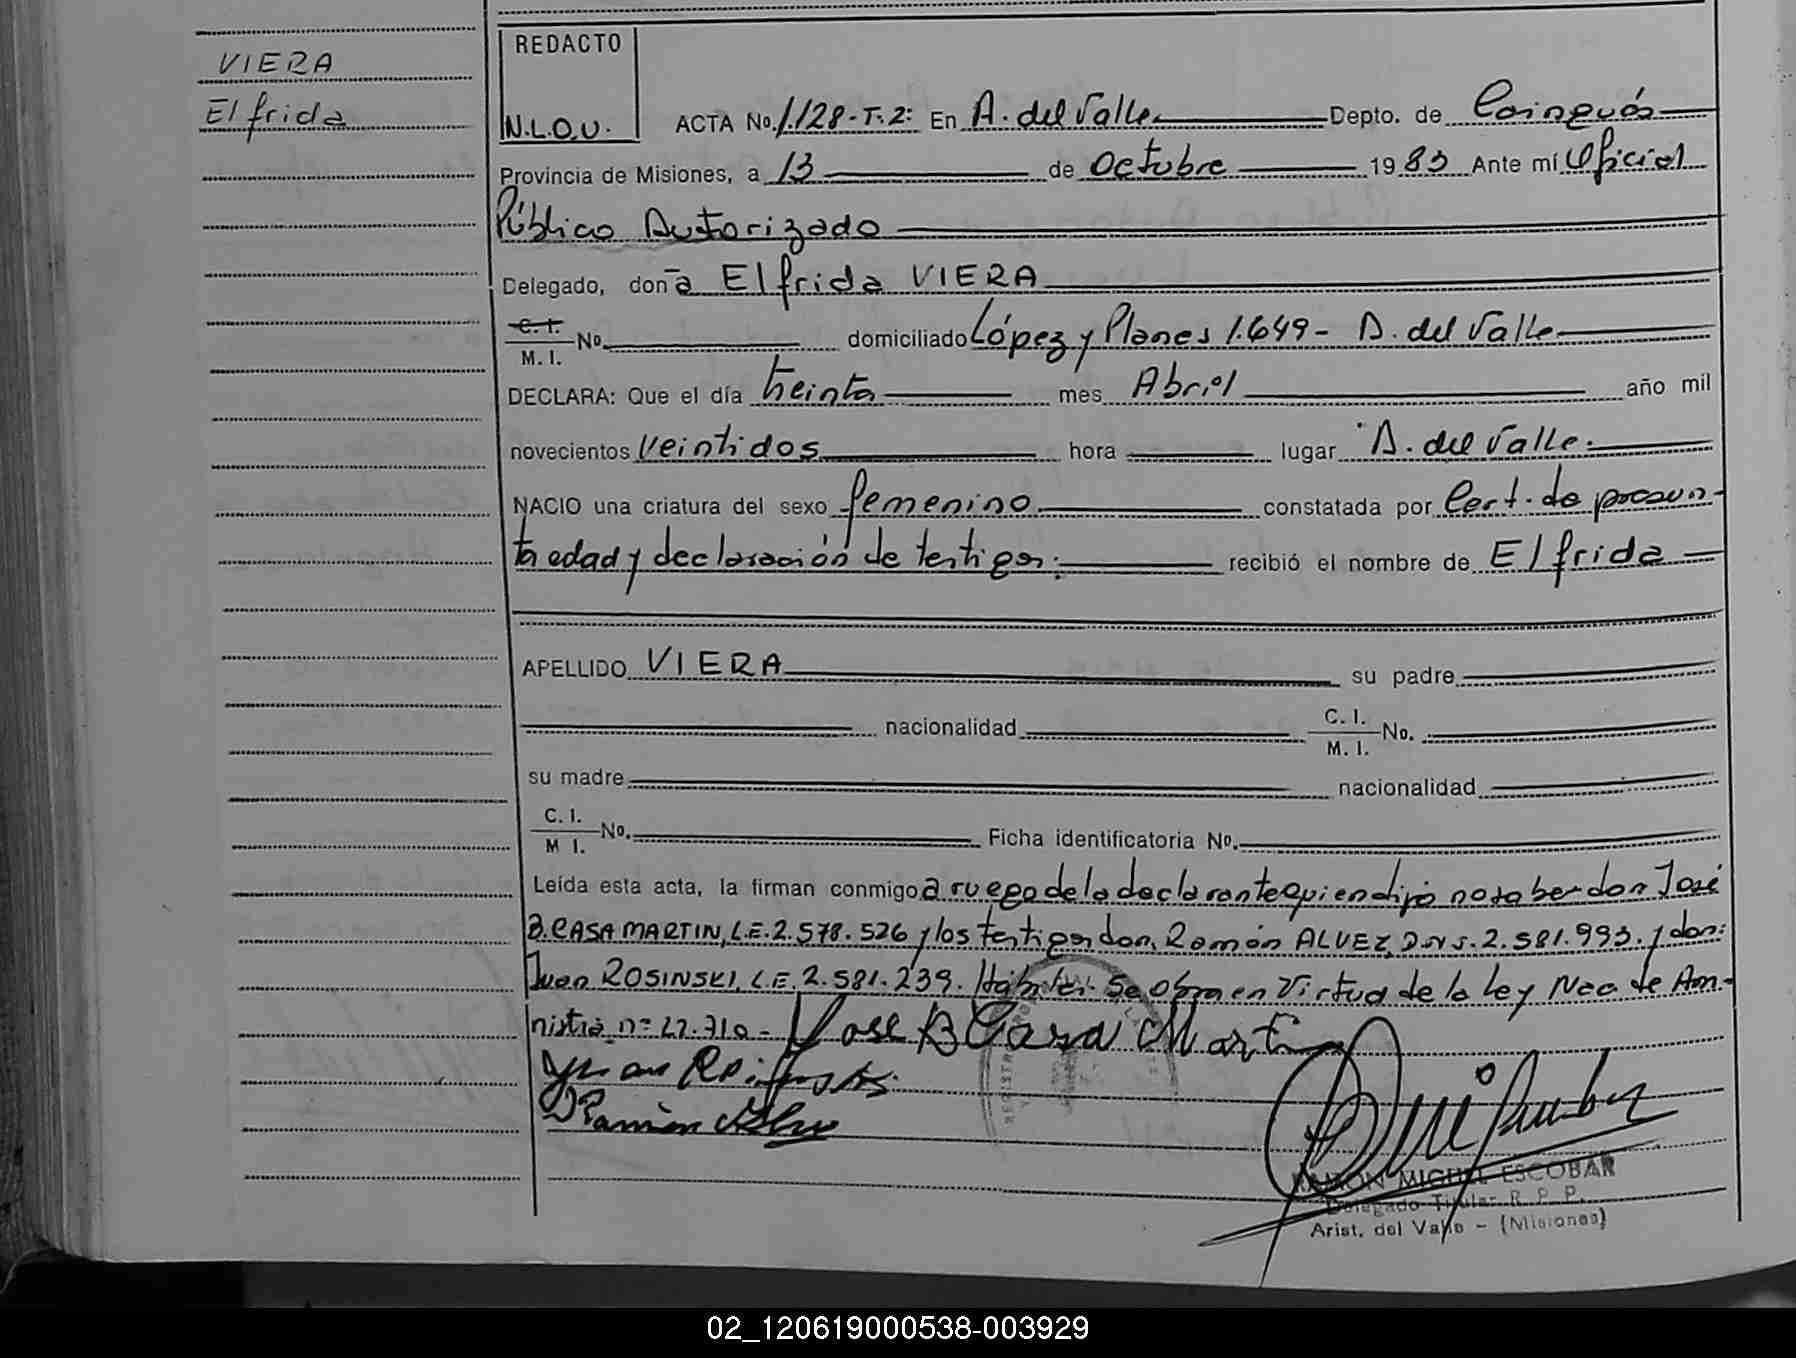 VIERA
Elfrida
REDACTO
N.L.O.U.
ACTA No. 1.128-T.2: En A. del Valle Depto. de Cainguás
Provincia de Misiones, a 13 de Octubre 1983 Ante mí Oficial
Público Autorizado
Delegado, doña Elfrida VIERA
C. I.
M. I. No. domiciliado López y Planes 1.649 - A. del Valle
DECLARA: Que el día treinta mes Abril año mil
novecientos veintidos hora lugar A. del Valle.
NACIO una criatura del sexo femenino. constatada por Cert. de presun-
ta edad y declaración de testigos: recibió el nombre de Elfrida
APELLIDO VIERA su padre
nacionalidad C. I. No.
M. I.
su madre nacionalidad
C. I. No. Ficha identificatoria No.
M I.
Leída esta acta, la firman conmigo a ruego de la declarante quien dijo no saber don José
B. CASA MARTIN, L.E. 2.578.526 y los testigos don, Ramón ALVEZ, 2.581.993. y don:
Juan ROSINSKI, L.E. 2.581.239. Hábiles. Se obra en Virtud de la Ley Nac. de Am-
nistia nº 22.710-
Jose B Casa Martin
Juan
Ramon
RAMON MIGUEL ESCOBAR
Delegado Titular R. P. P.
Arist. del Valle - (Misiones)
02_120619000538-003929